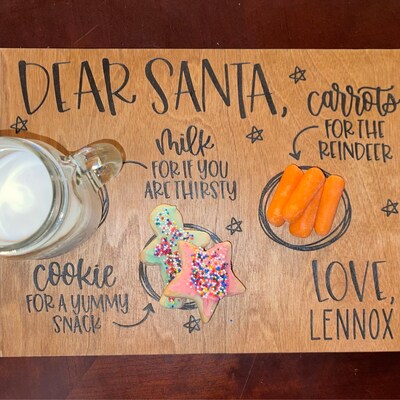 DEAR SANTA,
carrots
FOR THE
REINDEER
milk
FOR IF YOU
ARE THIRSTY
cookie
FOR A YUMMY
SNACK
LOVE,
LENNOX